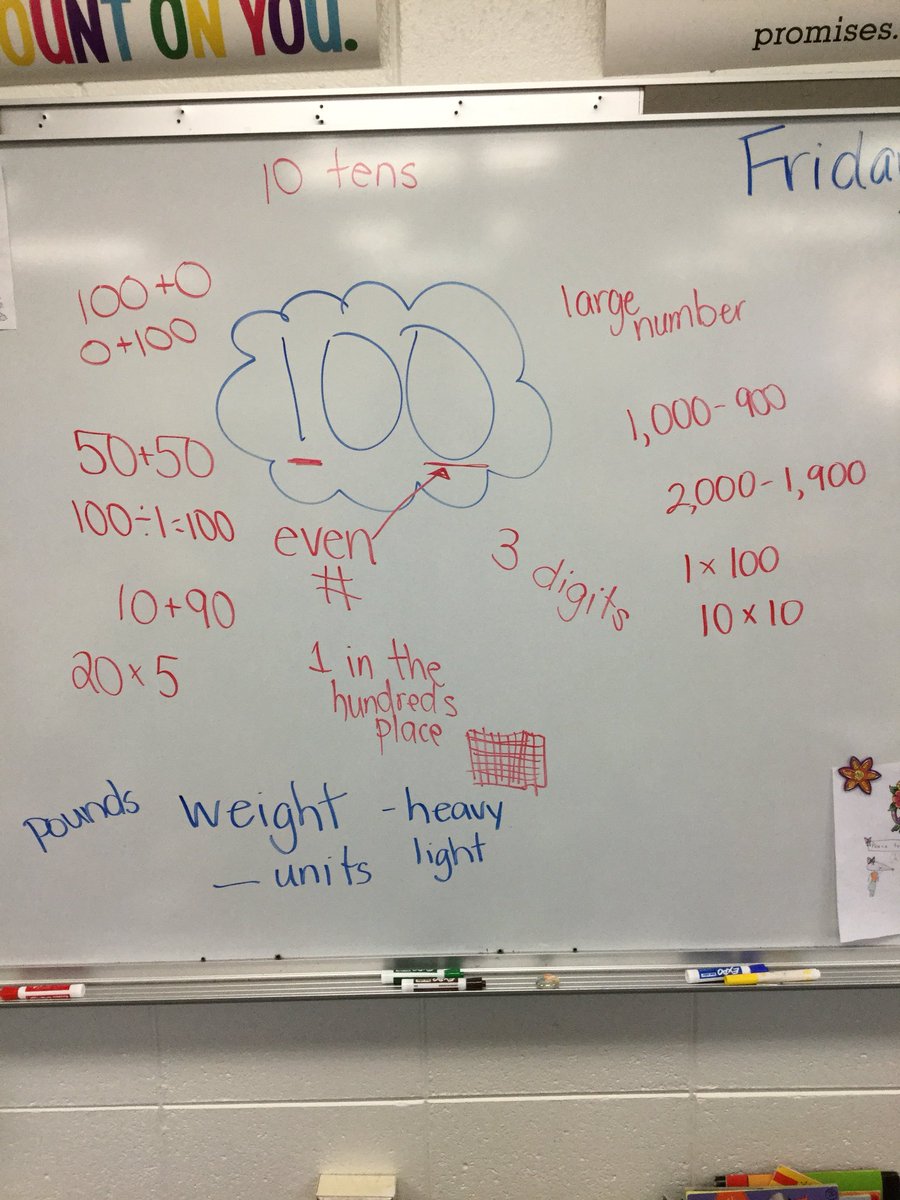 OUNT ON YOU.
promises.
10 tens
Frida
100+0
0+100
100
large
number
1,000-900
50+50
2,000-1,900
100÷1=100
even
#
3 digits
1 x 100
10+90
10 x 10
20 x 5
1 in the
hundred's
place
pounds weight - heavy
— units light
EXPO